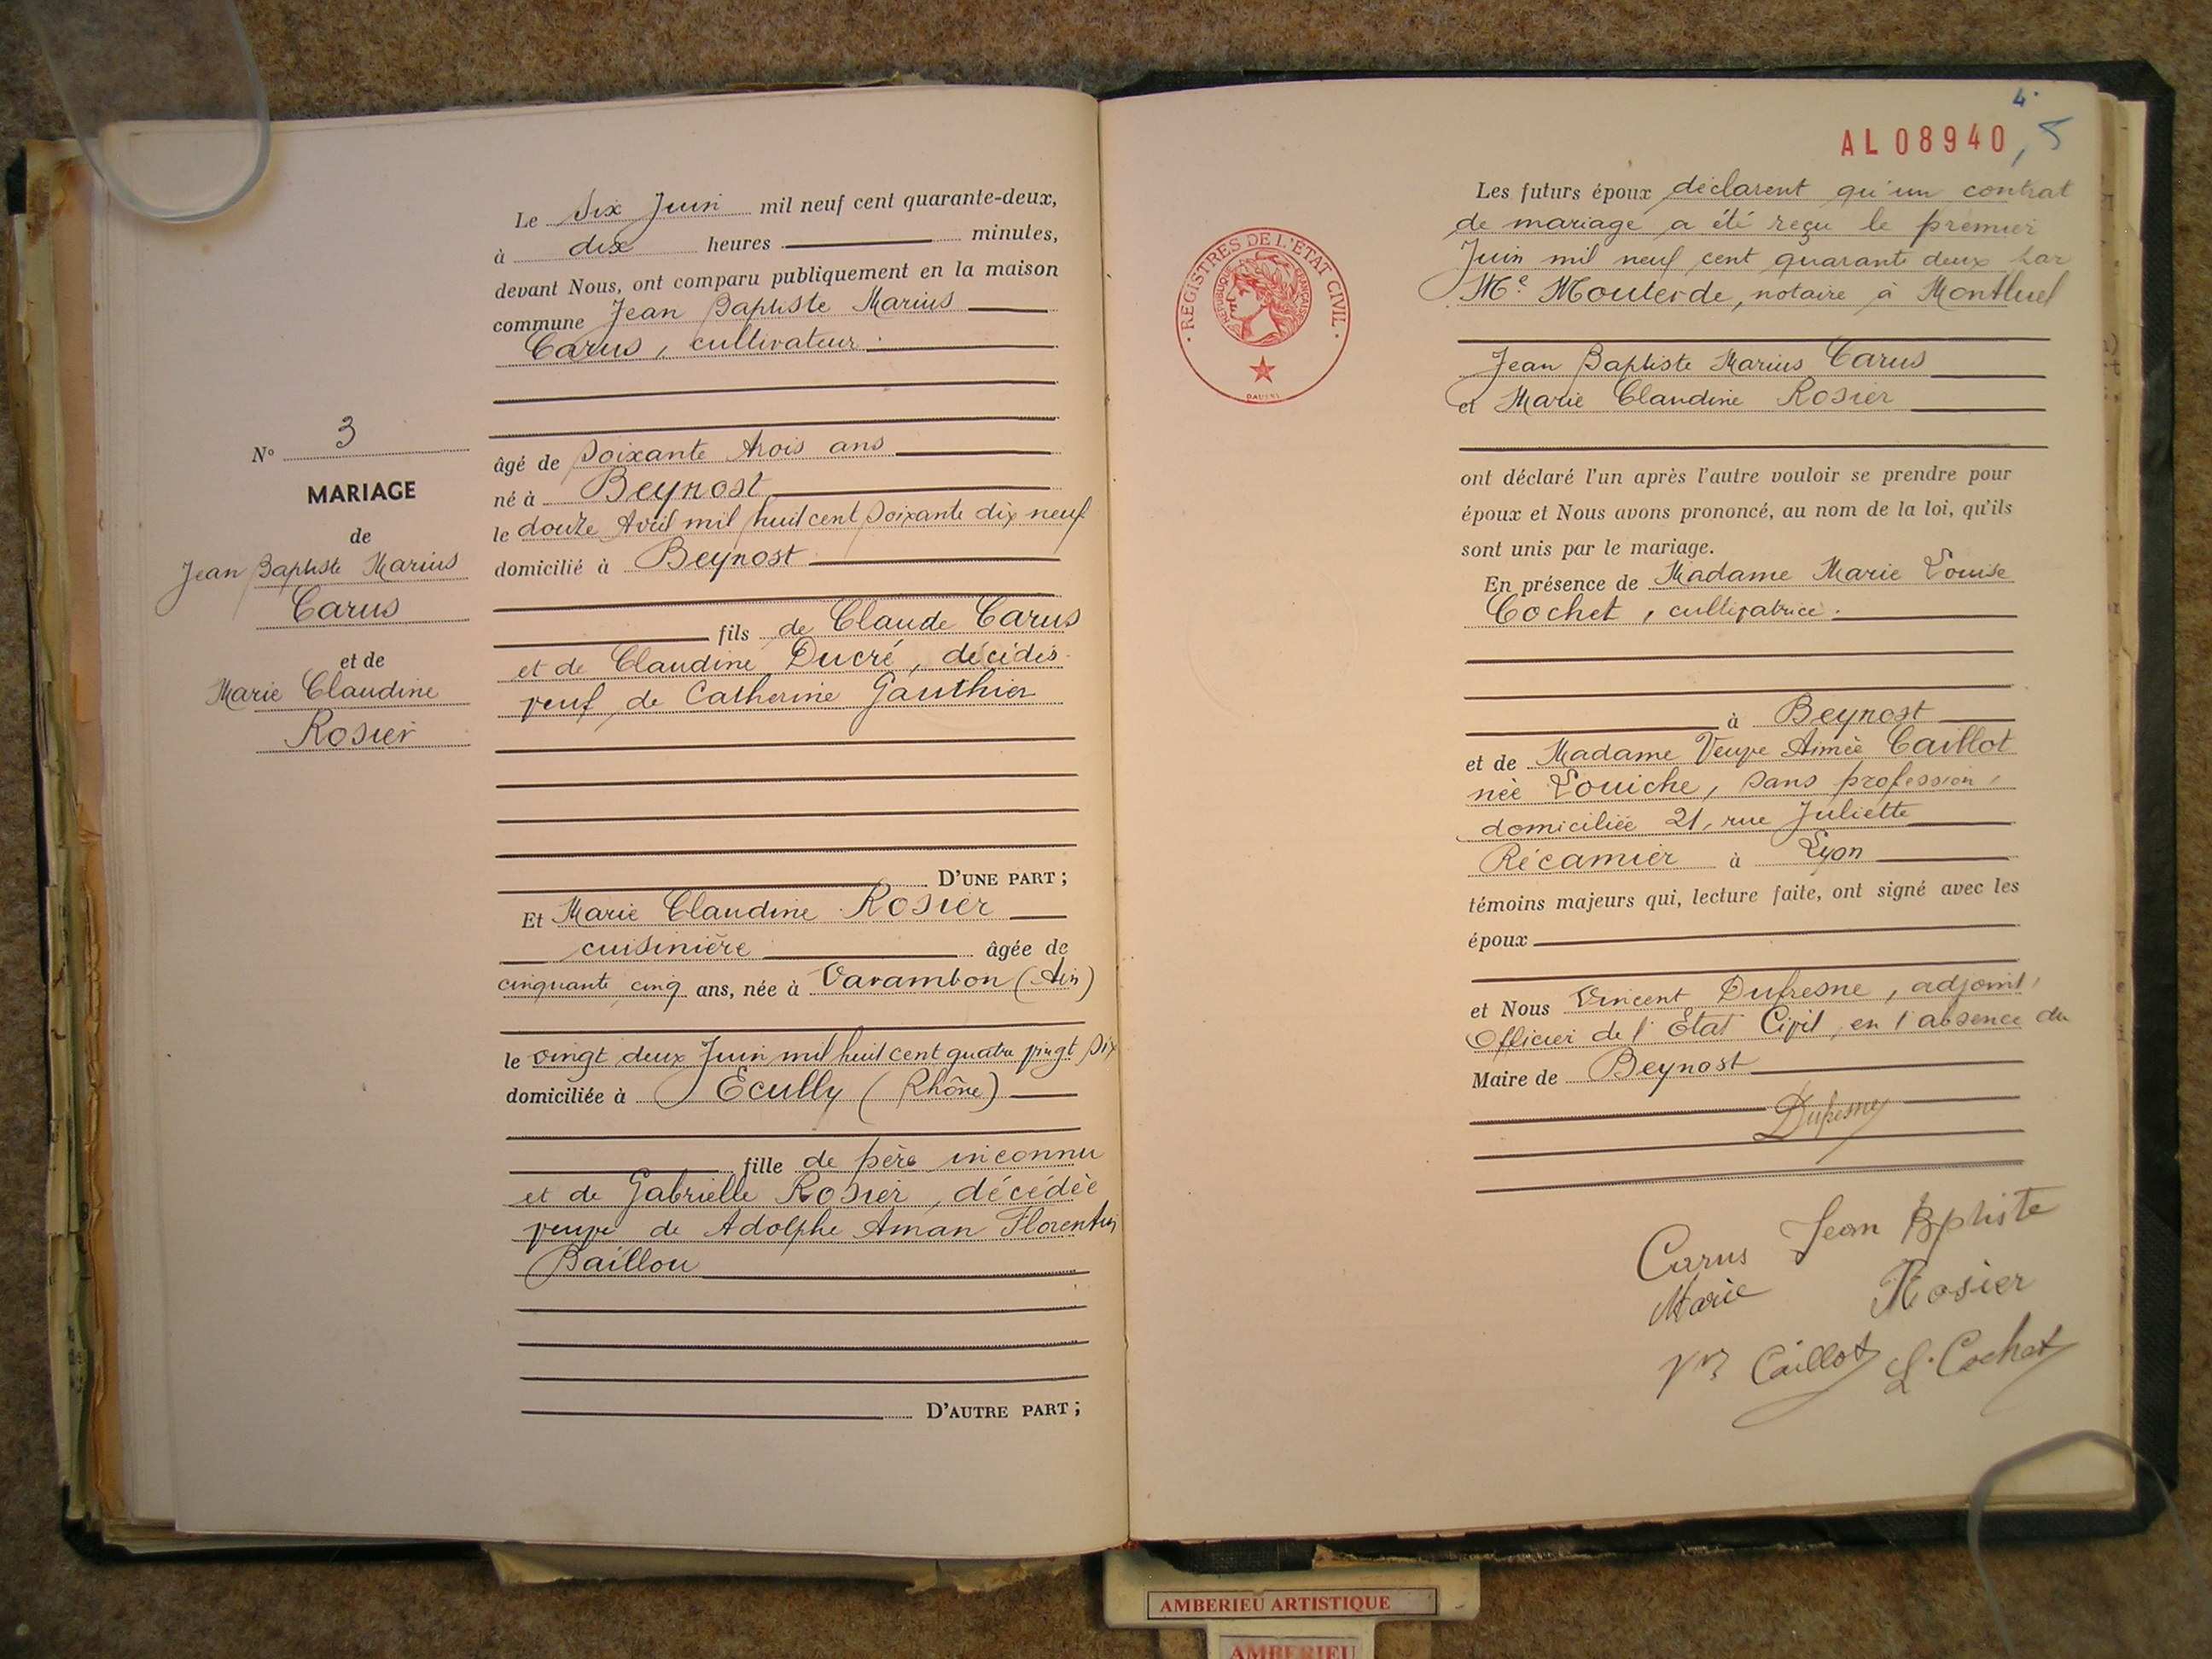 N° 3
MARIAGE
de
Jean Baptiste Marius
Carus
et de
Marie Claudine
Rosier
Le six Juin mil neuf cent quarante-deux,
à dix heures minutes,
devant Nous, ont comparu publiquement en la maison
commune Jean Baptiste Marius
Carus, cultivateur
âgé de soixante trois ans
né à Beynost
le douze Avril mil huit cent soixante dix neuf
domicilié à Beynost
fils de Claude Carus
et de Claudine Ducré, décédés
veuf de Catherine Gauthier
D'UNE PART ;
Et Marie Claudine Rosier
cuisinière âgée de
cinquante cinq ans, née à Varambon (Ain)
le vingt deux Juin mil huit cent quatre vingt six
domiciliée à Ecully (Rhône)
fille de père inconnu
et de Gabrielle Rosier, décédée
veuve de Adolphe Aman Florentin
Baillou
D'AUTRE PART ;
4
AL 08940, 5
REGISTRES DE L'ETAT CIVIL
REPUBLIQUE FRANÇAISE
Les futurs époux déclarent qu'un contrat
de mariage a été reçu le premier
Juin mil neuf cent quarante deux par
Me Mouterde, notaire à Montluel
Jean Baptiste Marius Carus
et Marie Claudine Rosier
ont déclaré l'un après l'autre vouloir se prendre pour
époux et Nous avons prononcé, au nom de la loi, qu'ils
sont unis par le mariage.
En présence de Madame Marie Louise
Cochet, cultivatrice.
à Beynost
et de Madame Veuve Aimée Caillot
née Louiche, sans profession,
domiciliée 21, rue Juliette
Récamier à Lyon
témoins majeurs qui, lecture faite, ont signé avec les
époux
et Nous Vincent Dufresne, adjoint,
Officier de l'Etat Civil, en l'absence du
Maire de Beynost
Dufresne
Carus Jean Bptiste
Marie Rosier
Vve Caillot L. Cochet
AMBERIEU ARTISTIQUE
AMBERIEU